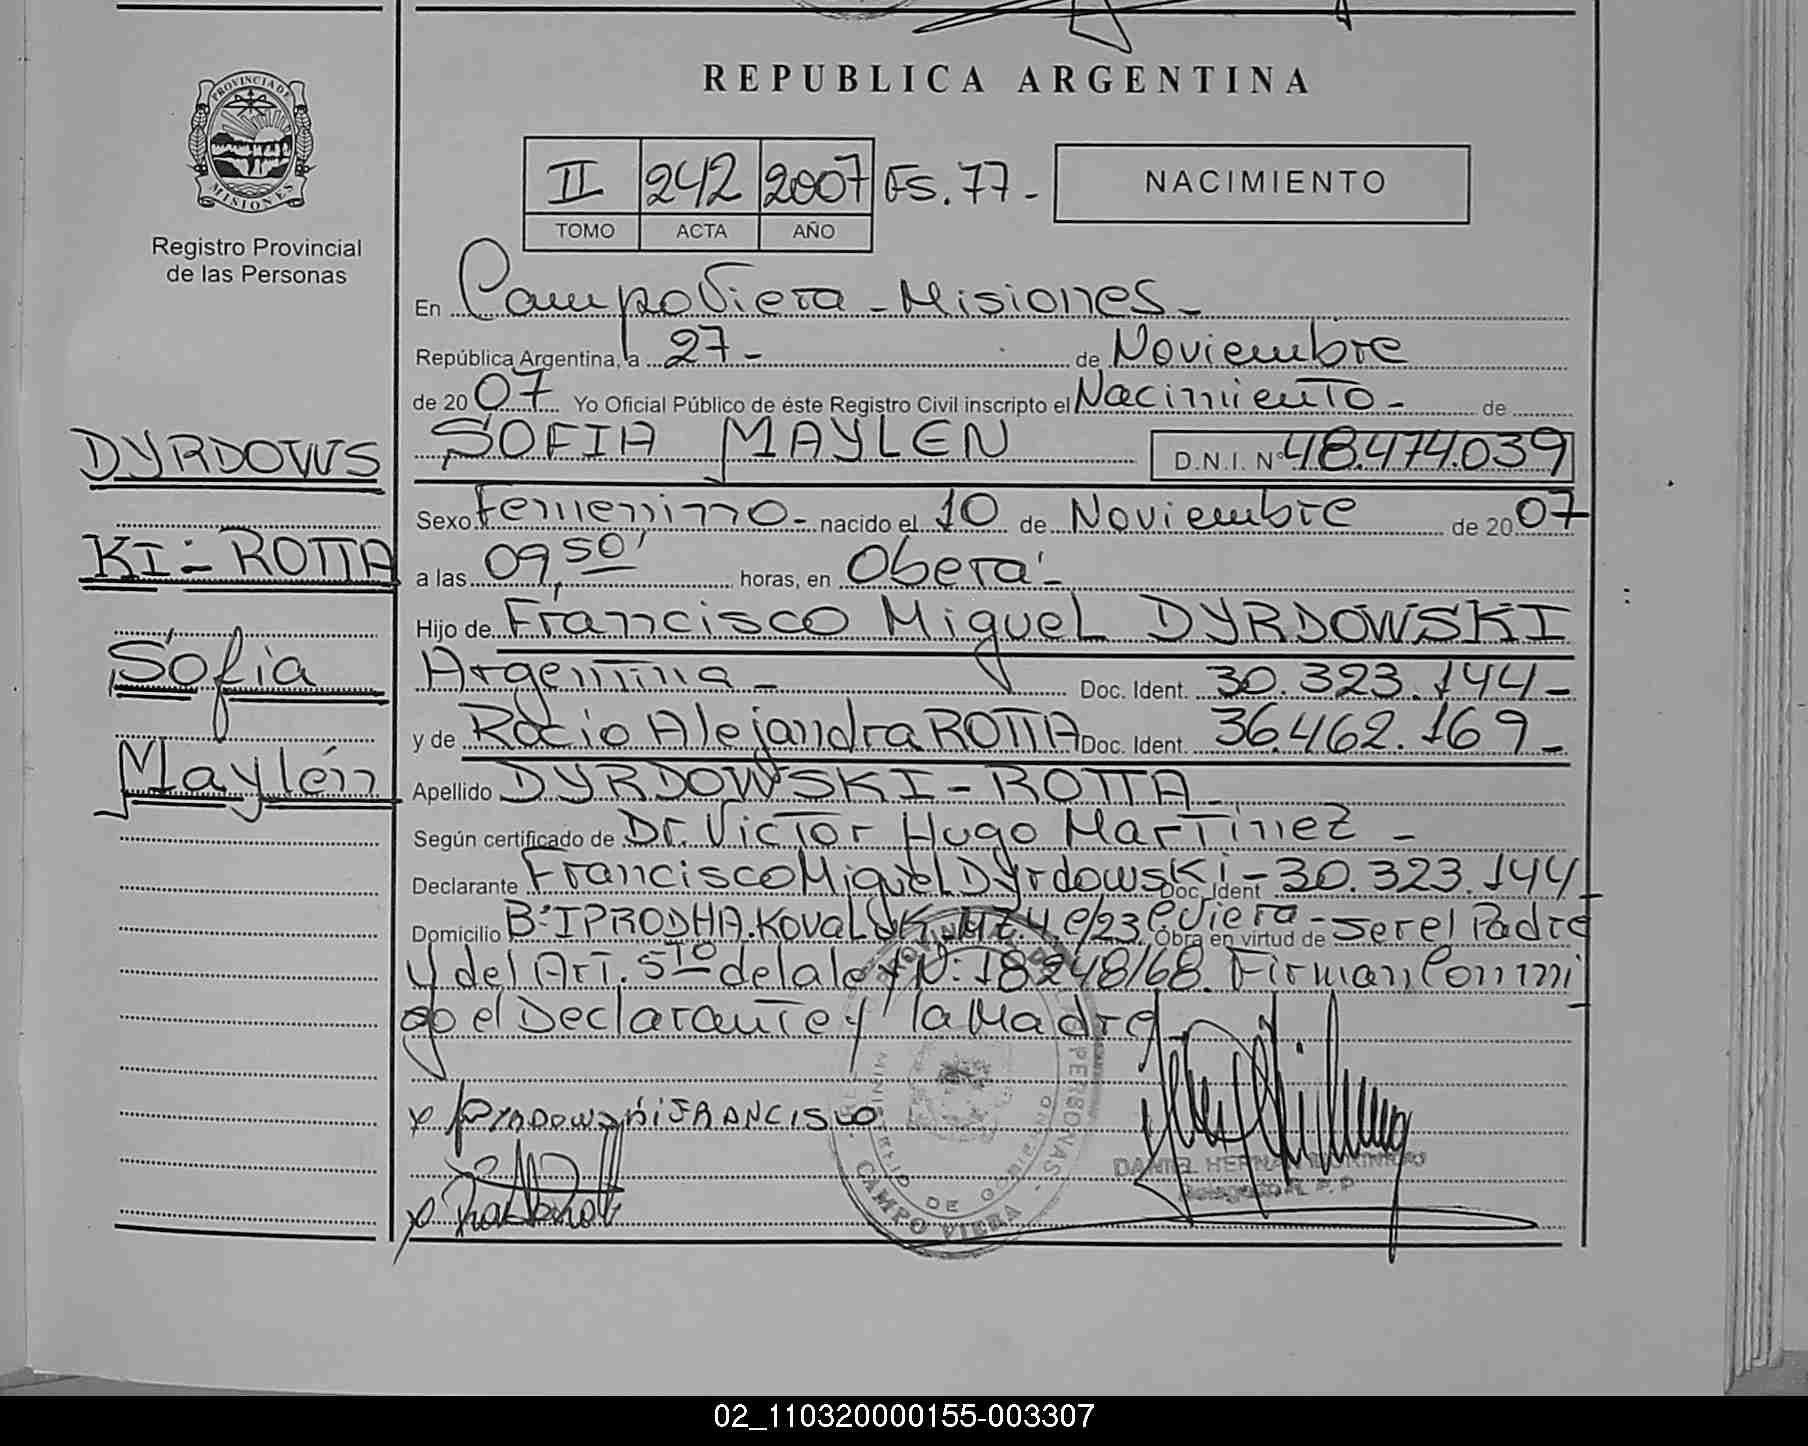 REPUBLICA ARGENTINA
PROVINCIA DE MISIONES
Registro Provincial
de las Personas
II 242 2007 Fs. 77.-
TOMO ACTA AÑO
NACIMIENTO
En Campo Viera - Misiones -
República Argentina, a 27 - de Noviembre
de 2007 Yo Oficial Público de éste Registro Civil inscripto el Nacimiento - de
SOFIA MAYLEN D.N.I. Nº 48.474.039
Sexo Femenino - nacido el 10 de Noviembre de 2007
a las 09,50' horas, en Oberá -
Hijo de Francisco Miguel DYRDOWSKI
Argentina - Doc. Ident. 30.323.144 -
y de Rocio Alejandra ROTTA Doc. Ident. 36.462.169 -
Apellido DYRDOWSKI - ROTTA -
Según certificado de Dr. Victor Hugo Martinez -
Declarante Francisco Miguel Dyrdowski - Doc. Ident 30.323.144 -
Domicilio Bº IPRODHA. Kovaluk. Mz. 4. C/23. C. Viera - Obra en virtud de ser el Padre
y del Art. 5to de la ley Nº: 18248/68. Firman Conmi
go el Declarante y la Madre
DYRDOWS
KI - ROTTA
Sofia
Maylén
x DYRDOWSKI FRANCISCO
x
PROVINCIAL DE PERSONAS
MINISTERIO DE GOBIERNO
CAMPO VIERA
DANIEL HERNAN
Delegado R. P. P
02_110320000155-003307